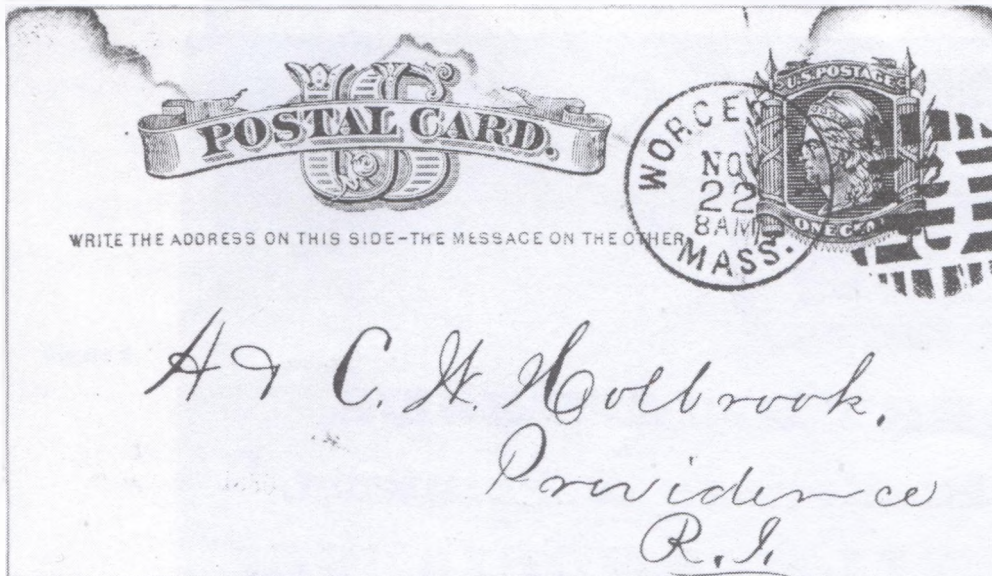 US
POSTAL CARD.
WRITE THE ADDRESS ON THIS SIDE-THE MESSAGE ON THE OTHER
WORCE
NO
22
8AM
MASS.
U.S. POSTAGE
ONE CE
A & C. W. Holbrook.
Providence
R.I.